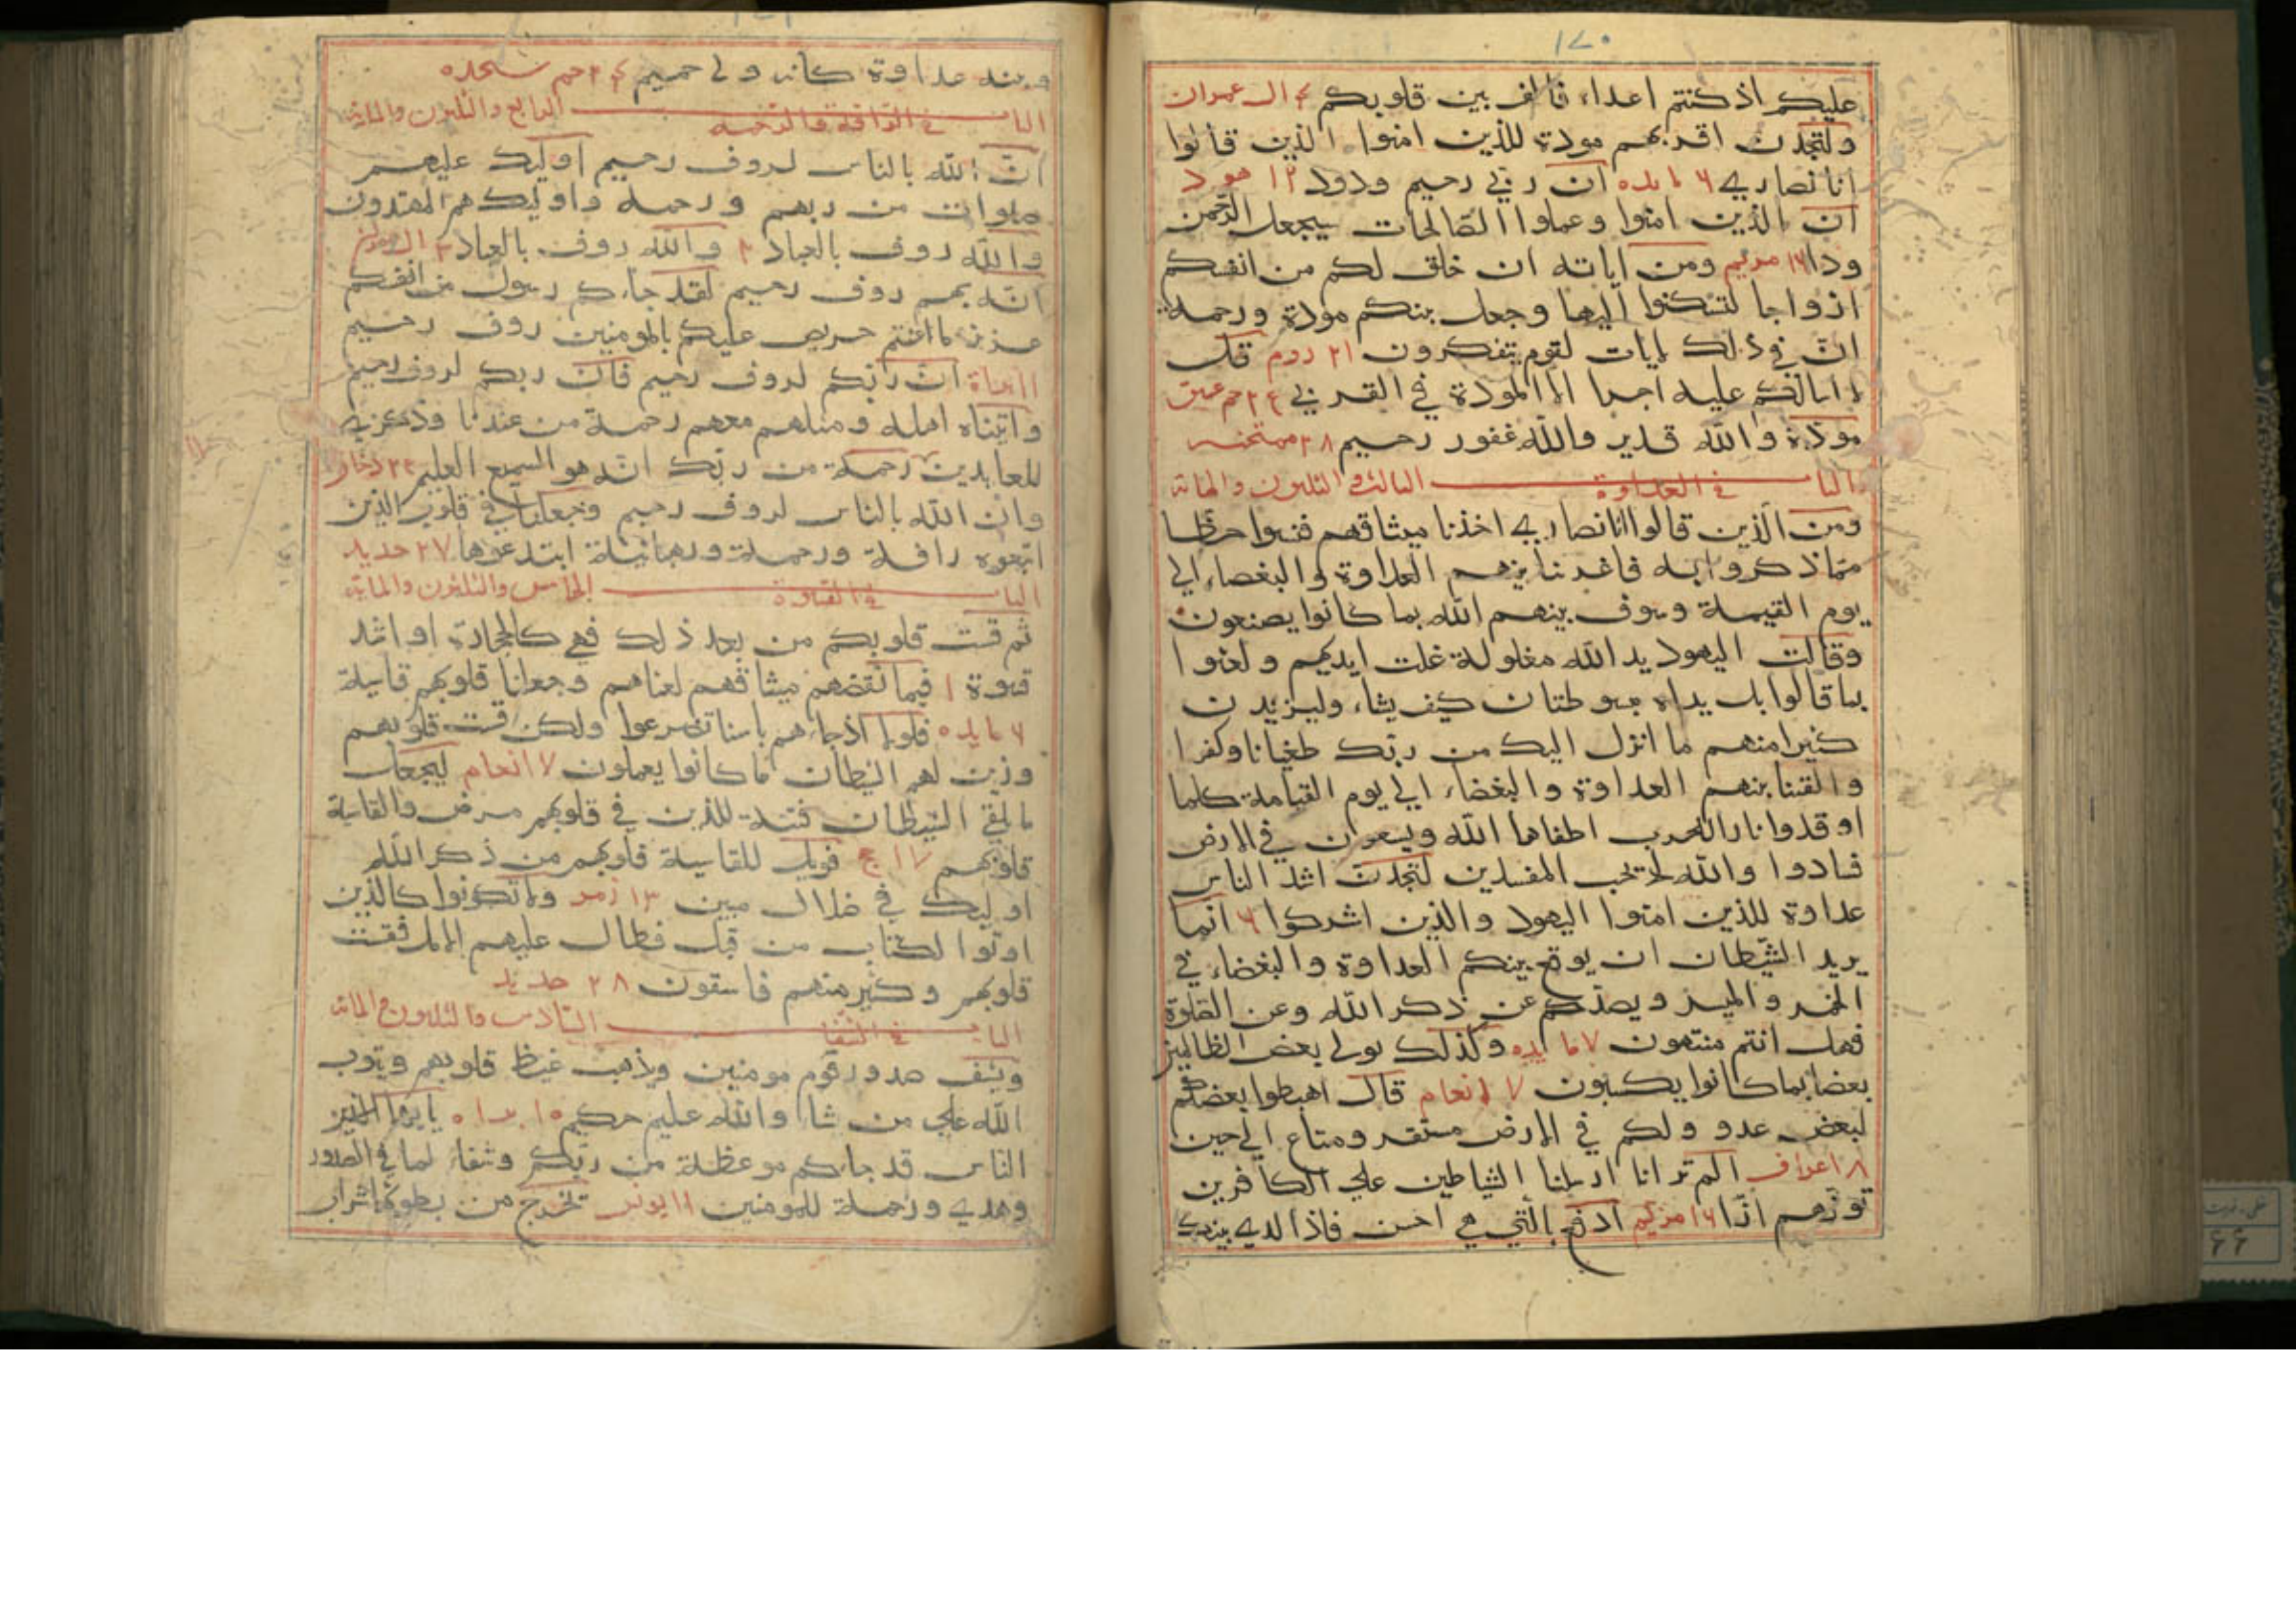 ١٧٠
عليكم اذ كنتم اعداء فالف بين قلوبكم ٤ ال عمران
ولتجدن اقربهم مودة للذين امنوا الذين قالوا
انا نصاري ٦ مايده ان ربي رحيم ودود ١٢ هود
ان الذين امنوا وعملوا الصالحات سيجعل الرحمن
ودا ١٦ مريم ومن اياته ان خلق لكم من انفسكم
ازواجا لتسكنوا اليها وجعل بينكم مودة ورحمة
ان في ذلك لايات لقوم يتفكرون ٢١ روم قل
لا اسالكم عليه اجرا الا المودة في القربي ٢٤ حم عسق
مودة والله قدير والله غفور رحيم ٢٨ ممتحنه
الباب في العداوة الثالث والثلثون والماىه
ومن الذين قالوا انا نصاري اخذنا ميثاقهم فنسوا حظا
مما ذكروا به فاغرينا بينهم العداوة والبغضاء الي
يوم القيمة وسوف ينبهم الله بما كانوا يصنعون
وقالت اليهود يد الله مغلولة غلت ايديهم ولعنوا
بما قالوا بل يداه مبسوطتان كيف يشاء وليزيدن
كثيرا منهم ما انزل اليك من ربك طغيانا وكفرا
والقينا بينهم العداوة والبغضاء الي يوم القيامة كلما
اوقدوا نارا للحرب اطفاها الله ويسعون في الارض
فسادوا والله لا يحب المفسدين لتجدن اشد الناس
عداوة للذين امنوا اليهود والذين اشركوا ٦ انما
يريد الشيطان ان يوقع بينكم العداوة والبغضاء في
الخمر والميسر ويصدكم عن ذكر الله وعن الصلوة
فهل انتم منتهون ٧ مايده وكذلك نولي بعض الظالمين
بعضا بما كانوا يكسبون ٧ انعام قال اهبطوا بعضكم
لبعض عدو ولكم في الارض مستقر ومتاع الي حين
٨ اعراف الم تر انا ارسلنا الشياطين علي الكافرين
توزهم ازا ١٦ مريم ادفع بالتي هي احسن فاذا الذي بينك
وبينه عداوة كانه ولي حميم ٢٤ حم سجده
الباب في الرافة والرحمه الرابع والثلثون والمايه
ان الله بالناس لروف رحيم اوليك عليهم
صلوات من ربهم ورحمة واوليك هم المهتدون
والله روف بالعباد ٢ والله روف بالعباد ٣ ال عمران
انه بهم روف رحيم لقد جاءكم رسول من انفسكم
عزيز ما عنتم حريص عليكم بالمومنين روف رحيم
ان ربكم لروف رحيم فان ربكم لروف رحيم
واتيناه اهله ومثلهم معهم رحمة من عندنا وذكري
للعابدين رحمة من ربك انه هو السميع العليم ٢٥ دخان
وان الله بالناس لروف رحيم وجعلنا في قلوب الذين
اتبعوه رافة ورحمة ورهبانية ابتدعوها ٢٧ حديد
الباب في القساوة الخامس والثلثون والمايه
ثم قست قلوبكم من بعد ذلك فهي كالحجارة او اشد
قسوة ١ فبما نقضهم ميثاقهم لعناهم وجعلنا قلوبهم قاسية
٦ مايده فلولا اذ جاءهم باسنا تضرعوا ولكن قست قلوبهم
وزين لهم الشيطان ما كانوا يعملون ٧ انعام ليجعل
ما يلقي الشيطان فتنة للذين في قلوبهم مرض والقاسية
قلوبهم ١٧ حج فويل للقاسية قلوبهم من ذكر الله
اوليك في ضلال مبين ٢٣ زمر ولا تكونوا كالذين
اوتوا لكتاب من قبل فطال عليهم الامد فقست
قلوبهم وكثير منهم فاسقون ٢٨ حديد
الباب في الشفا السادس والثلثون والمايه
ويشف صدور قوم مومنين ويذهب غيظ قلوبهم ويتوب
الله علي من شاء والله عليم حكيم ١٠ براه يا ايها الذين
الناس قد جاءكم موعظة من ربكم وشفاء لما في الصدور
وهدي ورحمة للمومنين ١١ يونس تخرج من بطونها شراب